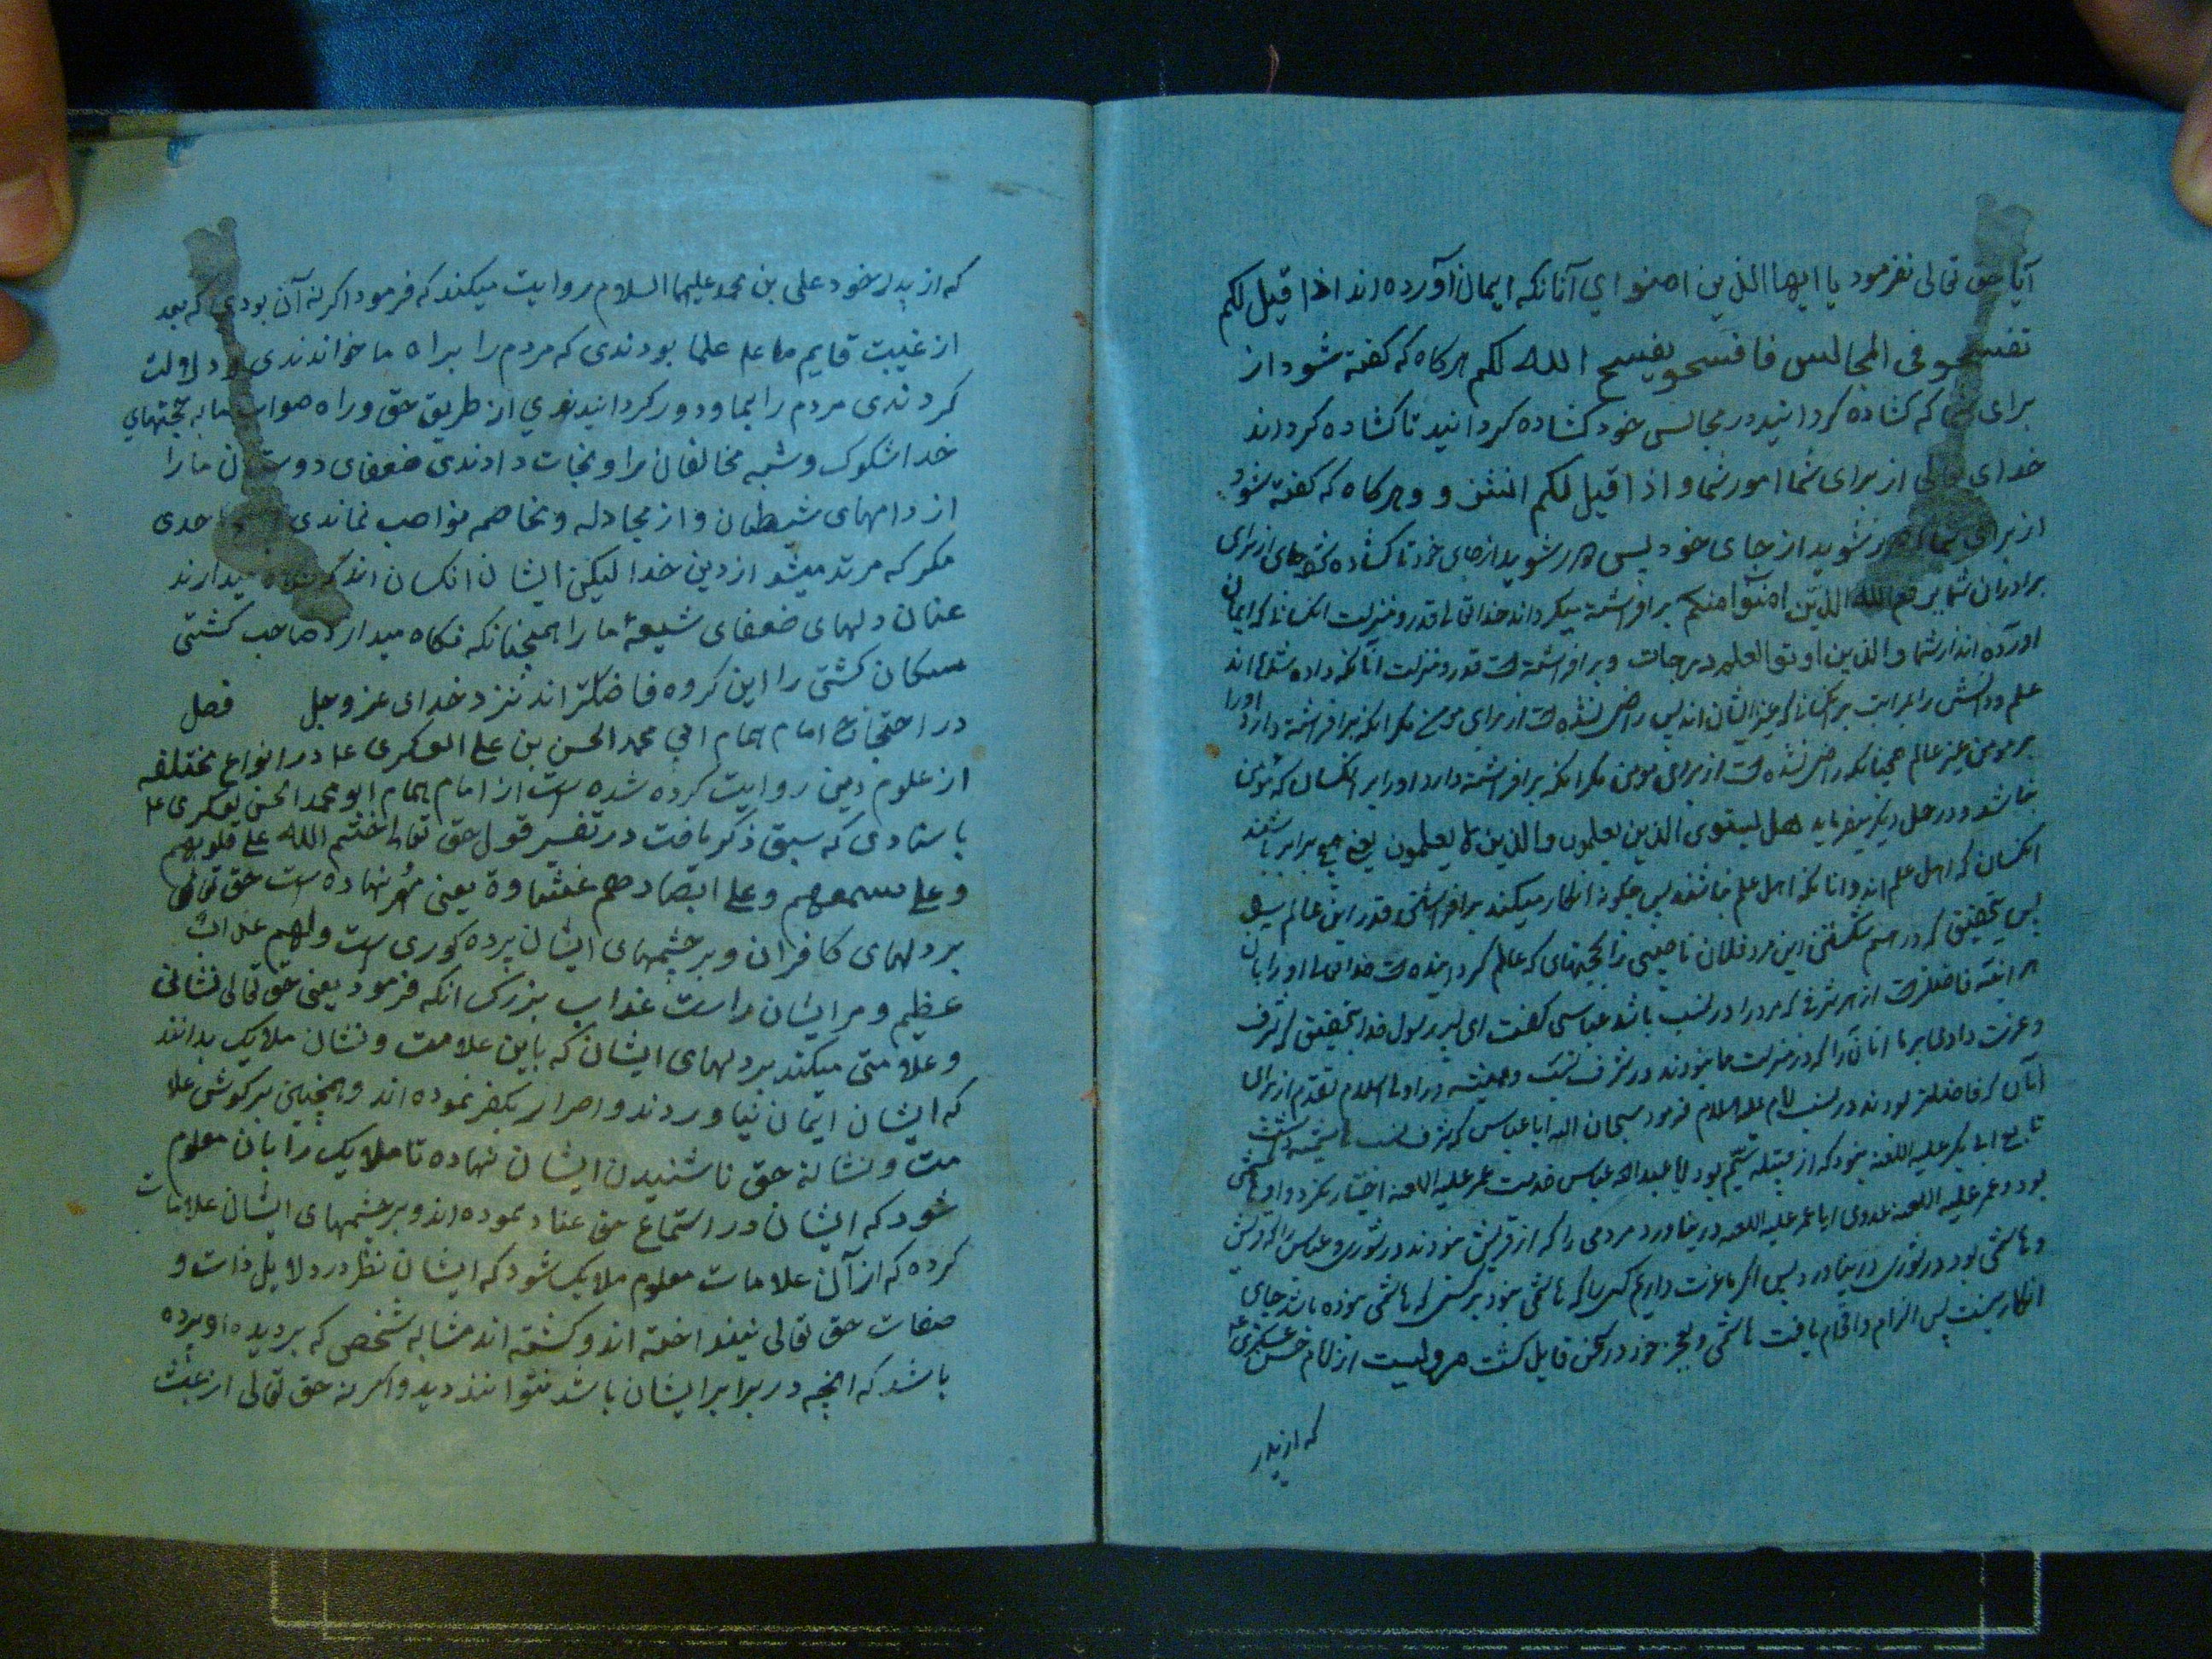 آیا حق تعالی نفرمود یا ایها الذین امنوا ای آنانکه ایمان آورده اند اذا قیل لکم
تفسحو فی المجالس فافسحو یفسح الله لکم هر کاه که کفته شود از
برای شما که کشاده کردانید در مجالس خود کشاده کردانید تا کشاده کرداند
خدای تعالی از برای شما امور شما و اذا قیل لکم انشزو و هر کاه که کفته شود
از برای شما شوید از جای خود پس شوید از جای خود تا کشاده شود جای از برای
برادران شما یرفع الله الذین امنوا منکم برافراشته میکرداند خدا تعالی قدر و منزلت انکسانرا که ایمان
اورده اند از شما و الذین اوتو العلم درجات و برافراشته است قدر و منزلت انانکه داده شده اند
علم و دانش را بمراتب بر انکسانیکه غیر ایشان اند پس راضی نشده است از برای مومن مکر انکه برافراشته دارد اورا
بر مومن غیر عالم همچنانکه راضی نشده است از برای مومن مکر انکه برافراشته دارد اورا بر انکسان که مومن
نباشد و در محل دیکر میفرماید هل یستوی الذین یعلمون و الذین لا یعلمون یعنی هیچ برابر باشند
انکسان که اهل علم اند و انانکه اهل علم نباشند پس چکونه انکار میکنید برافراشتن قدر این عالم
پس بتحقیق که درهم شکستن این مرد فلان ناصبی را بحجتهای که عالم کردانیده است خدا تعالی اورا بان
هر اینه فاضلتر است از هر شرفی که مرد را در نسب باشد عباسی کفت ای پسر رسول خدا بتحقیق که شرف
و عزت دادی بر ما انان را که در منزلت ما نبودند در شرف نسب و همیشه در اول اسلام تقدم از برای
آنان که فاضلتر بودند در نسب امام علیه السلام فرمود سبحان الله ایا عباس که شرف نسب
تابع ابی بکر علیه اللعنه نبود که از قبیله تیم بود ایا عبدالله عباس خدمت عمر علیه اللعنه اختیار نکرد و او هاشمی
بود و عمر علیه اللعنه عدوی ایا عمر علیه اللعنه در نیاورد مردمی را که از قریش نبودند در شوری و عباس را که قریش
و هاشمی بود در شوری در نیاورد پس اکر ما عزت داریم کسی را که هاشمی نبود بر کسی که هاشمی بوده باشد جای
انکار نیست پس الزام و اقحام یافت هاشمی و بعجز خود در سخن قایل کشت مرویست از امام حسن عسکری ع
که از پدر
که از پدر خود علی بن محمد علیهما السلام روایت میکند که فرمود اکر نه آن بودی که بعد
از غیبت قایم ما ع علما بودندی که مردم را براه ما خواندندی و دلالت
کردندی مردم را بما و دور کردانیدندی از طریق حق و راه صواب ما به حجتهای
خدا شکوک و شبه مخالفان را و نجات دادندی ضعفای دوستان ما را
از دامهای شیطان و از مجادله و مخاصمه نواصب نماندی احدی
مکر که مرتد میشد از دین خدا لیکن ایشان انکسان اند که نکاه میدارند
عنان دلهای ضعفای شیعهٔ ما را همچنانکه نکاه میدارد صاحب کشتی
سکان کشتی را این کروه فاضلتر اند نزد خدای عز و جل فصل
در احتجاج امام همام ابی محمد الحسن بن علی العسکری ع در انواع مختلفه
از علوم دین روایت کرده شده است از امام همام ابو محمد الحسن العسکری ع
باسنادی که سبق ذکر یافت در تفسیر قول حق تعالی ختم الله علی قلوبهم
و علی سمعهم و علی ابصارهم غشاوة یعنی مهر نهاده است حق تعالی
بر دلهای کافران و بر چشمهای ایشان پرده کوری است و لهم عذاب
عظیم و مر ایشان راست عذاب بزرک انکه فرمود یعنی حق تعالی نشانی
و علامتی میکند بر دلهای ایشان که باین علامت و نشان ملایک بدانند
که ایشان ایمان نیاوردند و اصرار بکفر نموده اند و همچنین بر کوش علا
مت و نشانه حق ناشنیدن ایشان نهاده تا ملایک را بان معلوم
شود که ایشان در استماع حق عناد نموده اند و بر چشمهای ایشان علامات
کرده که از آن علامات معلوم ملایک شود که ایشان نظر در دلایل ذات و
صفات حق تعالی نینداخته اند و کشته اند مشابه شخصی که بر دیده او پرده
باشد که انچه در برابر ایشان باشد نتوانند دید و اکر نه حق تعالی از عبث